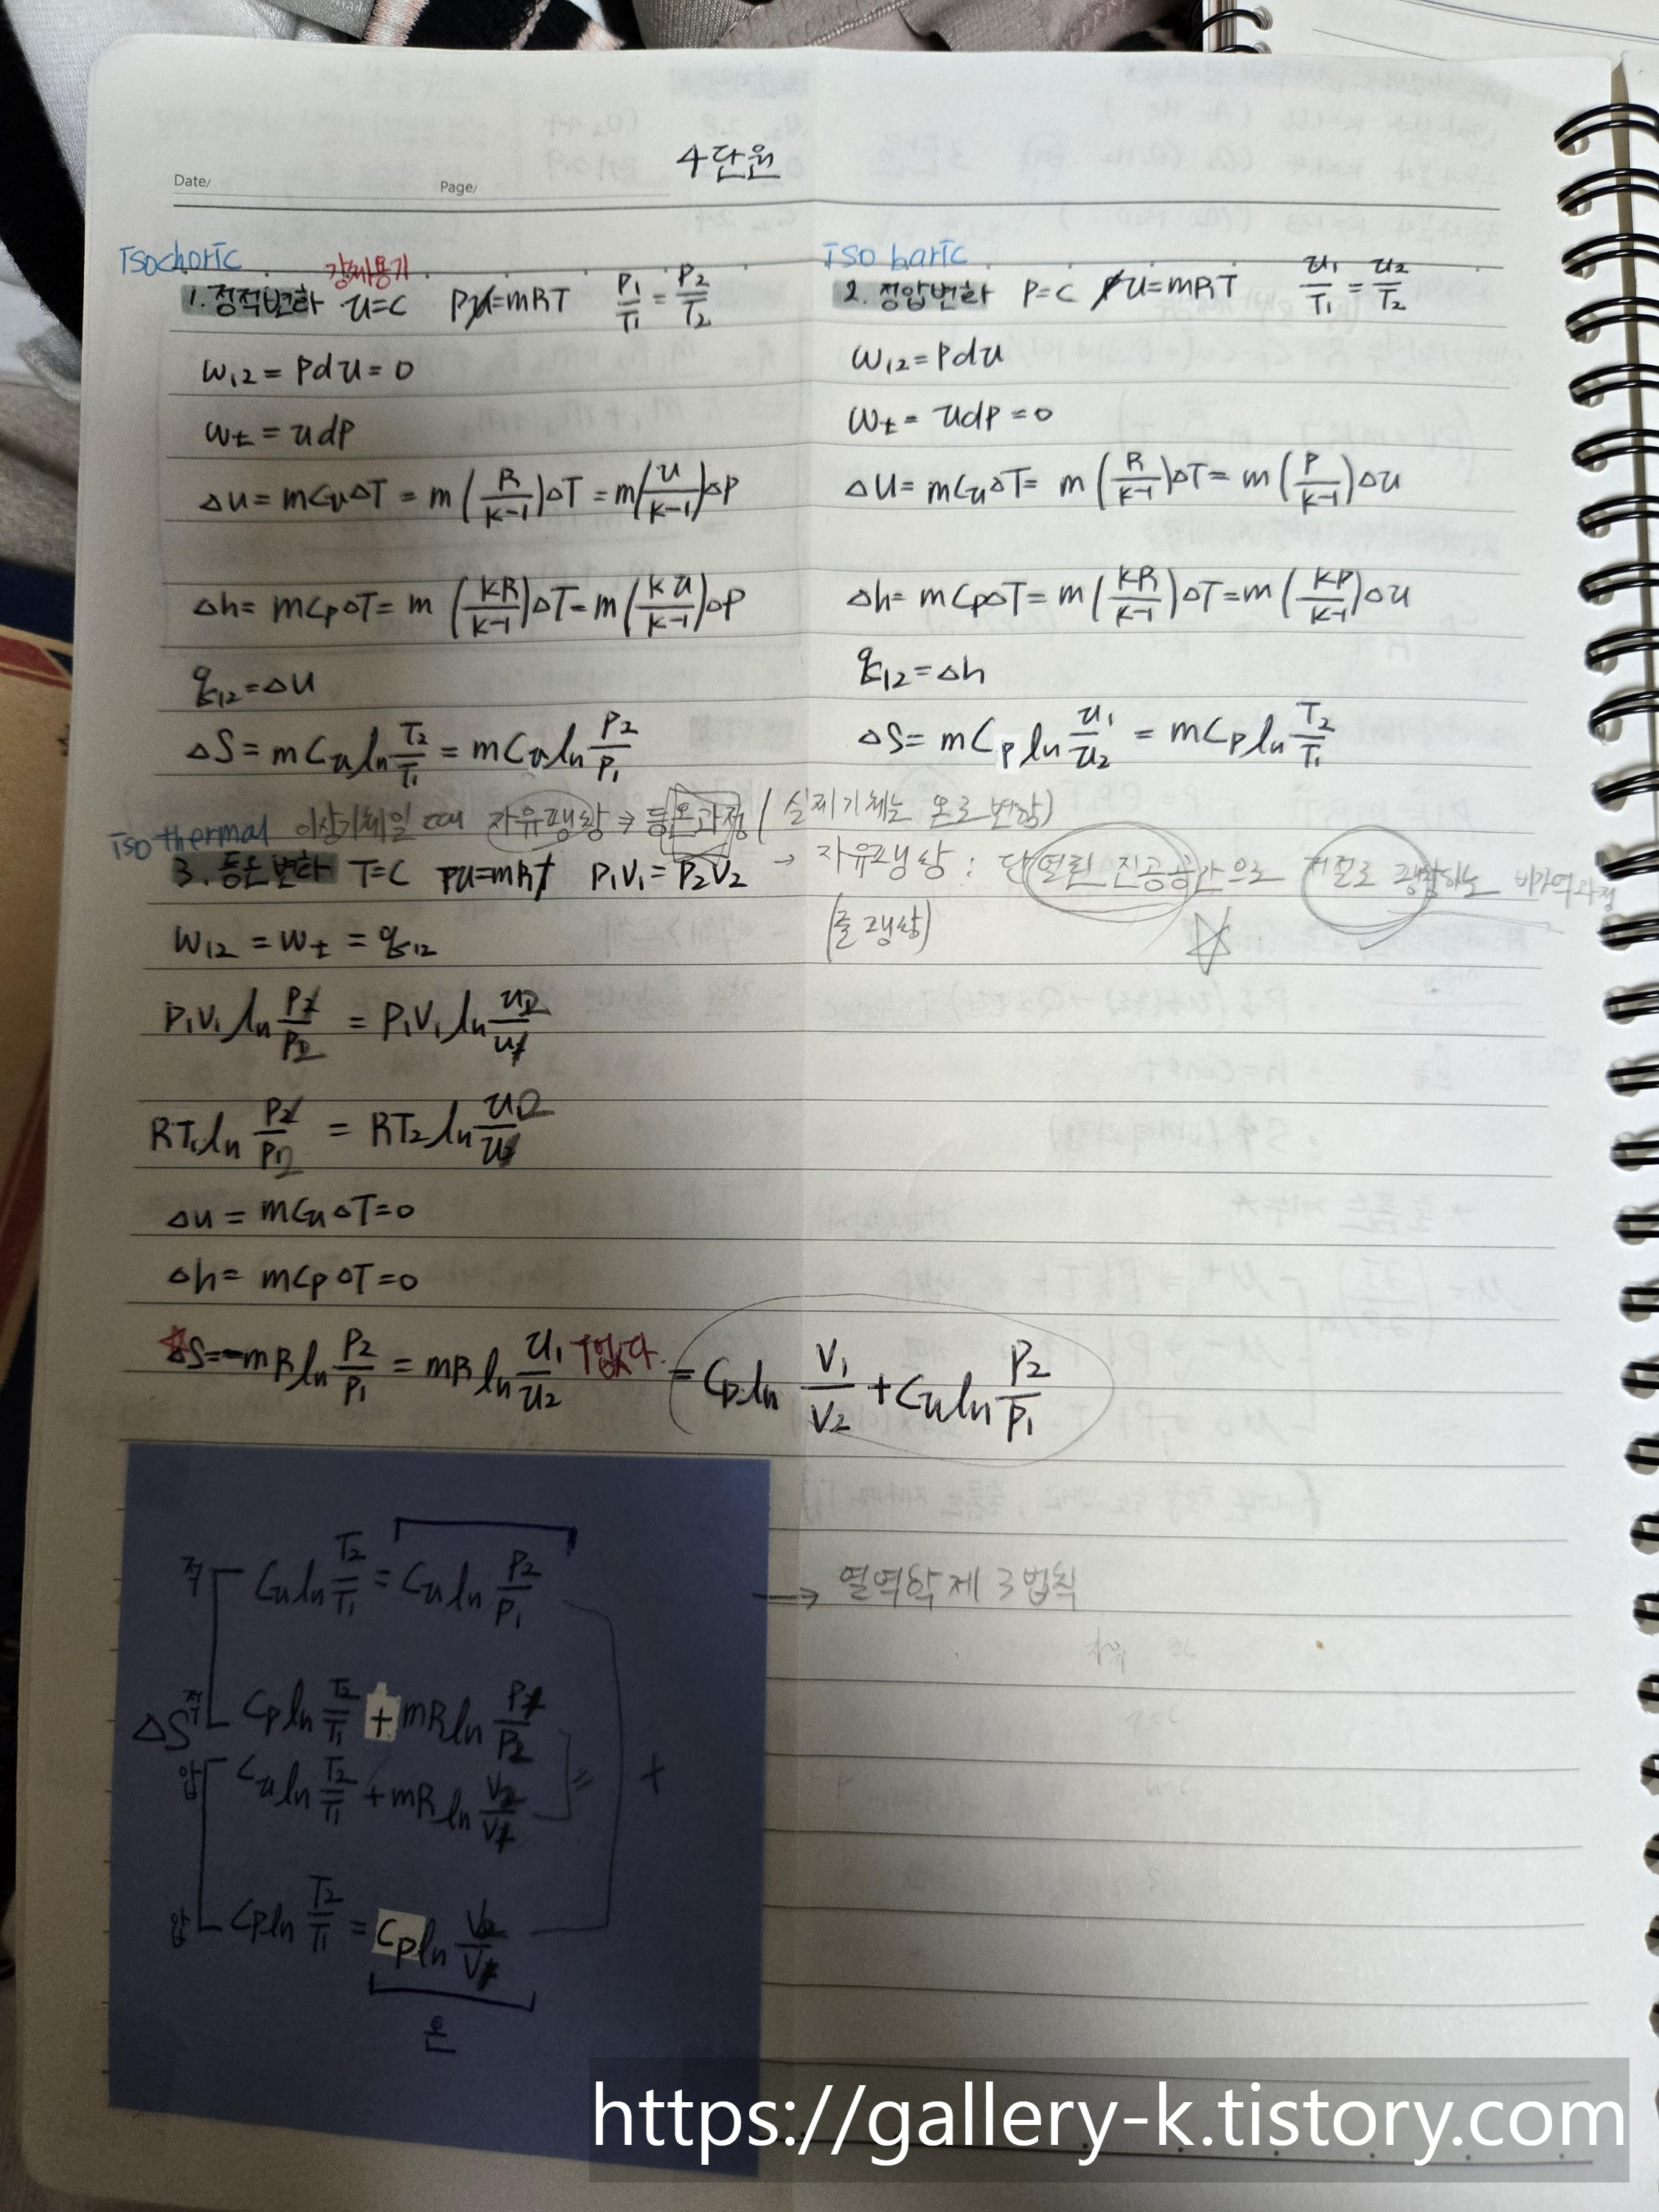 4단원
Date/
Page/
isochoric
강체용기
1. 정적변화 v=C Pv=mRT P1/T1 = P2/T2
w12 = Pdv = 0
wt = vdp
Δu = mCvΔT = m(R/k-1)ΔT = m(v/k-1)ΔP
Δh = mCpΔT = m(kR/k-1)ΔT = m(kv/k-1)ΔP
q12 = Δu
ΔS = mCv ln T2/T1 = mCv ln P2/P1
iso baric
2. 정압변화 P=C Pv=mRT v1/T1 = v2/T2
w12 = Pdv
wt = vdp = 0
Δu = mCvΔT = m(R/k-1)ΔT = m(P/k-1)Δv
Δh = mCpΔT = m(kR/k-1)ΔT = m(kP/k-1)Δv
q12 = Δh
ΔS = mCp ln v1/v2 = mCp ln T2/T1
iso thermal 이상기체일 때 자유팽창 ⇒ 등온과정 (실제기체는 온도변함)
3. 등온변화 T=C Pv=mRT P1V1 = P2V2 → 자유팽창 : 단열된 진공공간으로 저절로 팽창하는 비가역과정
(줄팽창)
w12 = wt = q12
P1V1 ln P1/P2 = P1V1 ln v2/v1
RT1 ln P1/P2 = RT2 ln v2/v1
Δu = mCvΔT = 0
Δh = mCpΔT = 0
ΔS = -mR ln P2/P1 = mR ln v1/v2 T없다. = Cp ln V1/V2 + Cv ln P2/P1
적 Cv ln T2/T1 = Cv ln P2/P1
→ 열역학 제 3법칙
ΔS 적 Cp ln T2/T1 + mR ln P1/P2
압 Cv ln T2/T1 + mR ln V2/V1 = +
압 Cp ln T2/T1 = Cp ln V2/V1
온
https://gallery-k.tistory.com